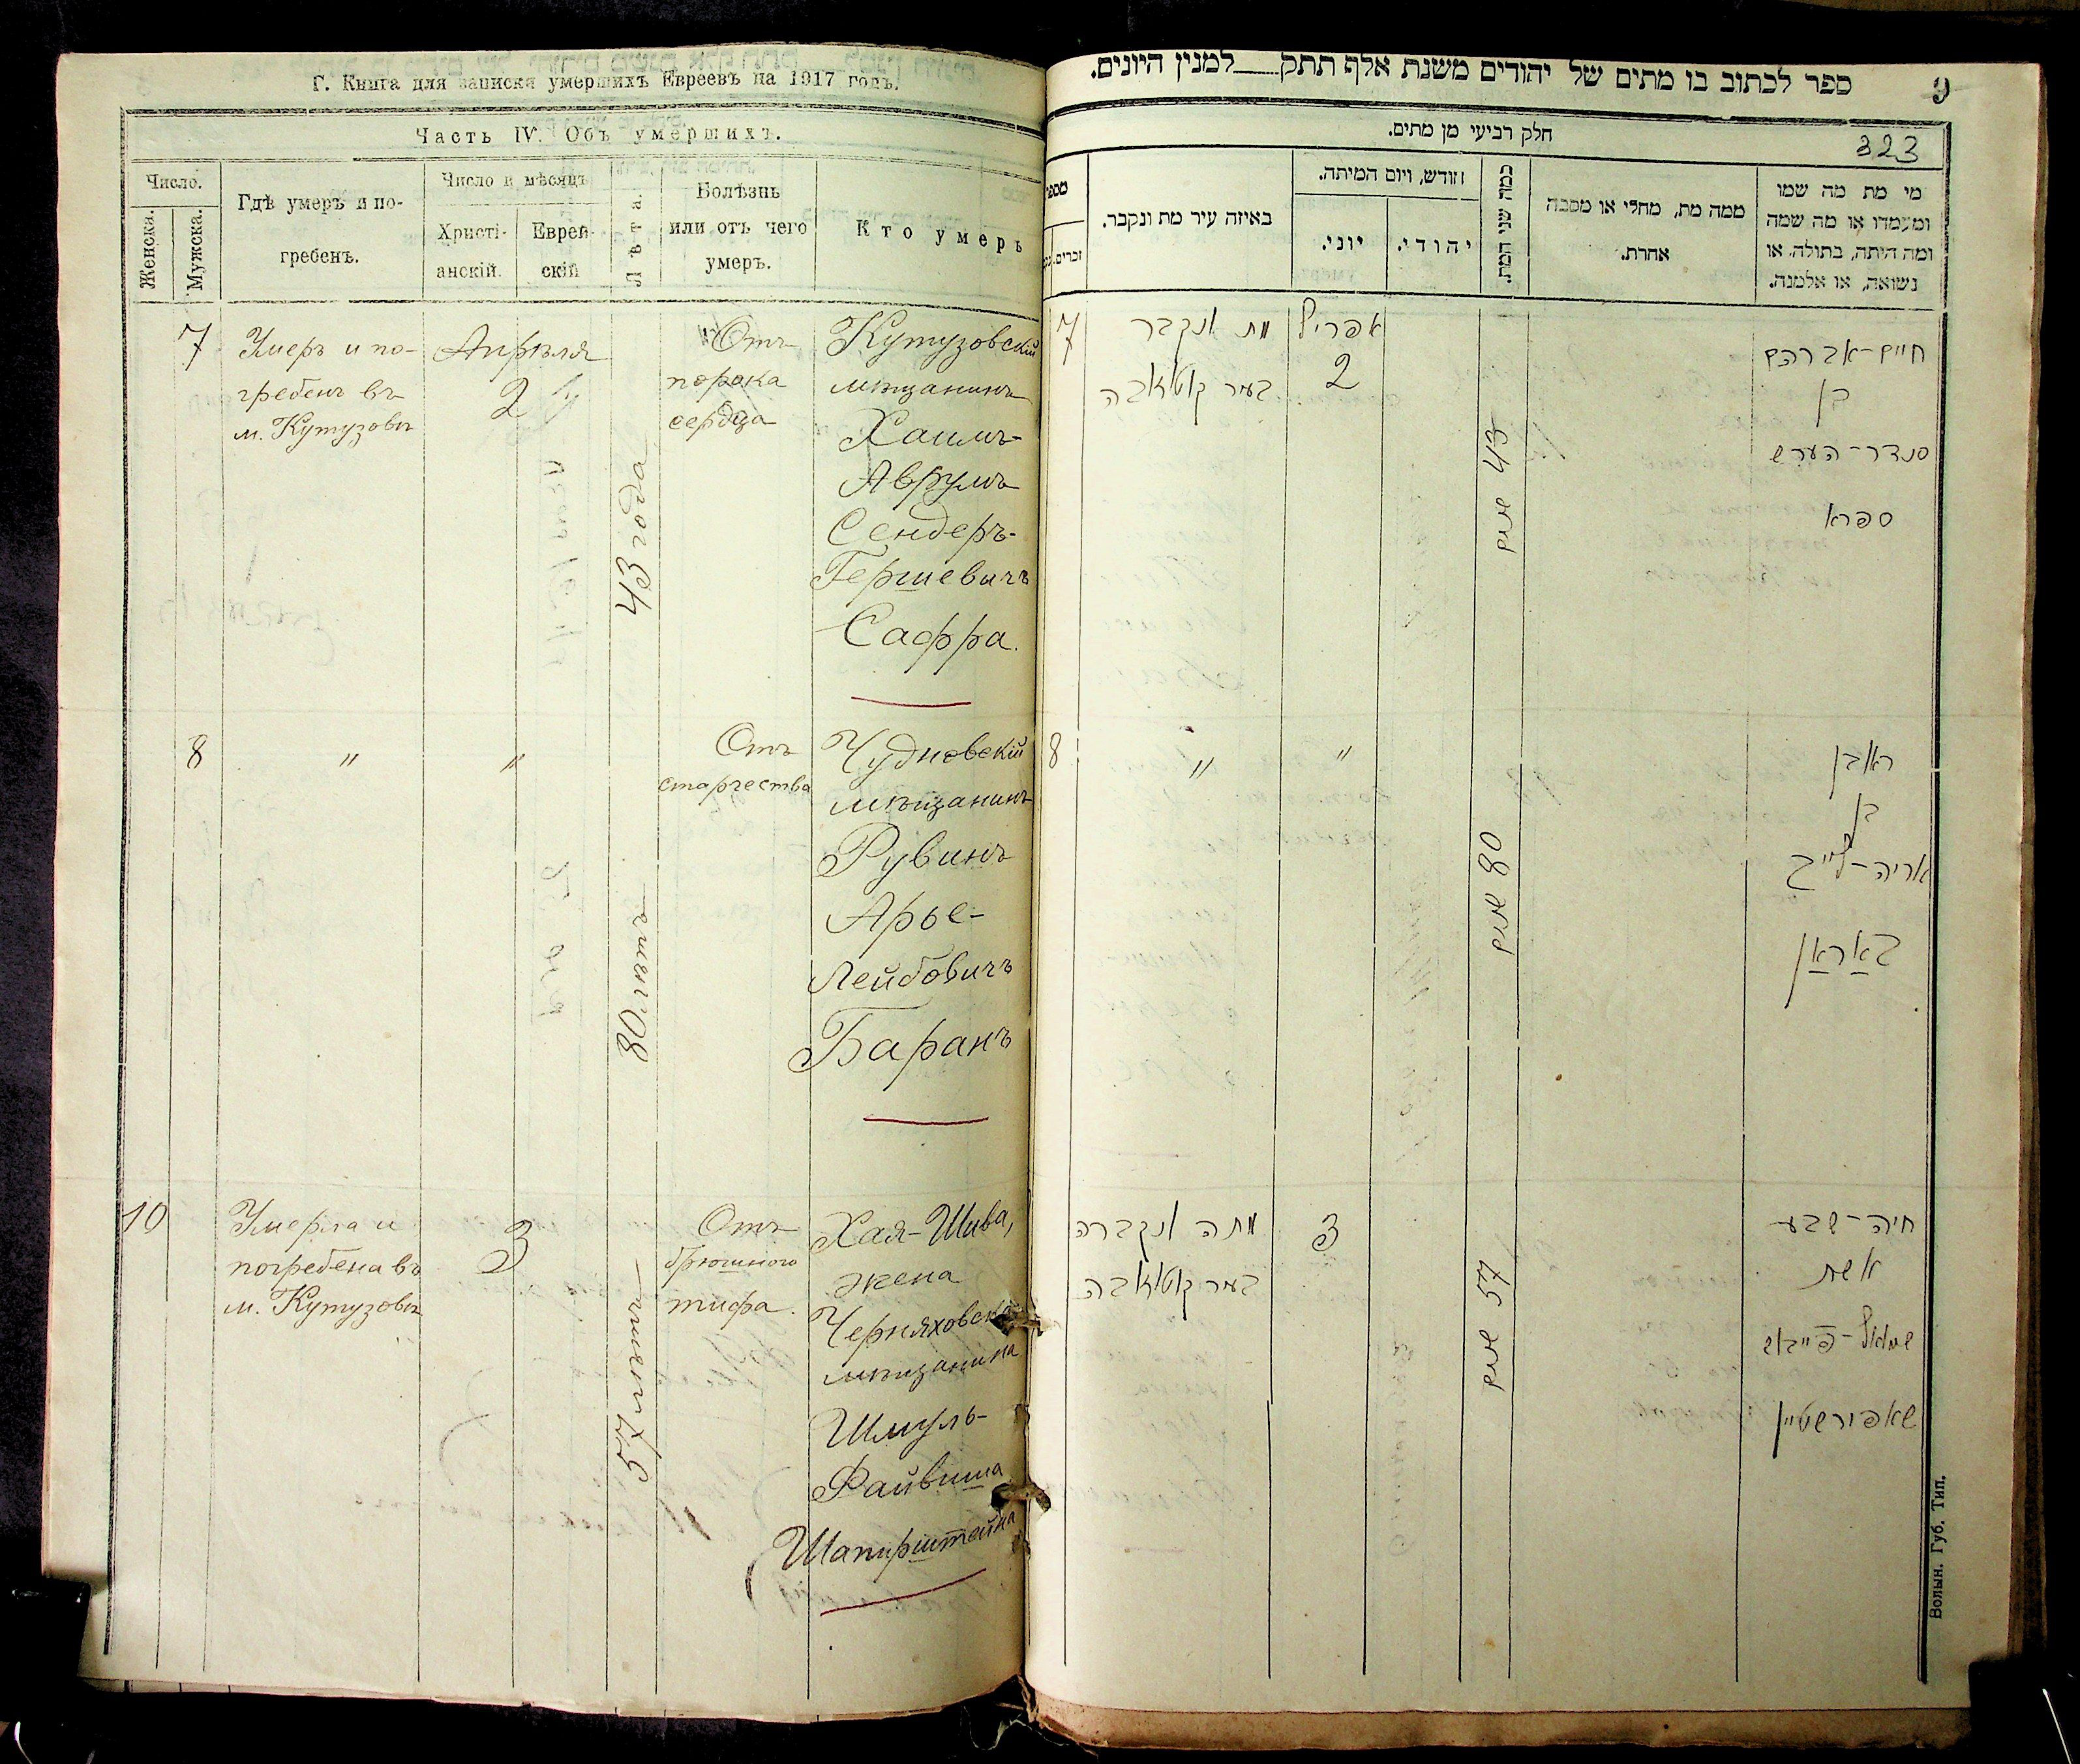 Г. Книга для записки умершихъ Евреевъ на 1917 годъ.
Часть IV. Объ умершихъ.
Число.
Женска.
Мужска.
Гдѣ умеръ и по-
гребенъ.
Число и мѣсяцъ
Христі-
анскій.
Еврей-
скій
Лѣта.
Болѣзнь
или отъ чего
умеръ.
Кто умеръ
7
Умеръ и по-
гребенъ въ
м. Кутузовѣ
Апрѣля
2
43 года
Отъ
порока
сердца
Кутузовскій
мѣщанинъ
Хаимъ-
Аврумъ
Сендеръ-
Гершевичъ
Сафра.
8
"
"
80 лѣтъ
Отъ
старчества
Чудновскій
мѣщанинъ
Рувинъ
Арье-
Лейбовичъ
Баранъ
10
Умерла и
погребена въ
м. Кутузовѣ
3
57 лѣтъ
Отъ
брюшного
тифа.
Хая-Шива,
жена
Черняховска
мѣщанина
Шмуль-
Файвиша
Шапирштейна
ספר לכתוב בו מתים של יהודים משנת אלף תתק למנין היונים.
9
חלק רביעי מן מתים.
323
מספר
זכרים.
באיזה עיר מת ונקבר.
חודש, ויום המיתה.
יוני.
יהודי.
כמה שני המת.
ממה מת, מחלי או מסבה
אחרת.
מי מת מה שמו
ומעמדו או מה שמה
ומה היתה, בתולה, או
נשואה, או אלמנה.
7
מת ונקבר
בעיר קוטוזובה
אפריל
2
43 שנים
חיים-אברהם
בן
סנדר-הערש
ספרא
8
"
"
80 שנים
ראובן
בן
אריה-לייב
באראן
מתה ונקברה
בעיר קוטוזובה
3
57 שנים
חיה-שבע
אשת
שמואל-פייבוש
שאפירשטיין
Волын. Губ. Тип.